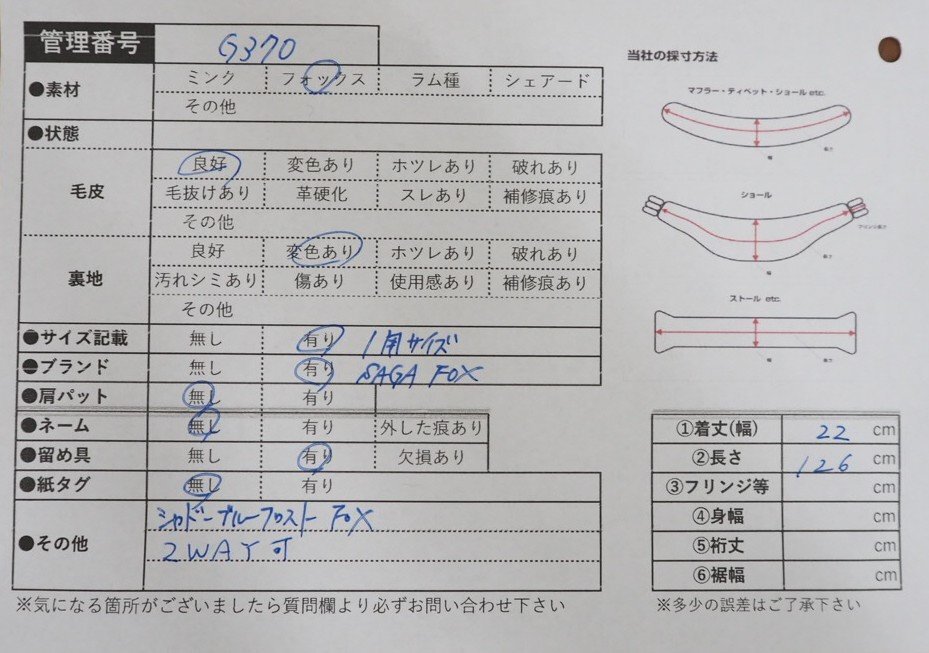 管理番号 G370
●素材 ミンク フォックス ラム種 シェアード
その他
●状態
毛皮 良好 変色あり ホツレあり 破れあり
毛抜けあり 革硬化 スレあり 補修痕あり
その他
裏地 良好 変色あり ホツレあり 破れあり
汚れシミあり 傷あり 使用感あり 補修痕あり
その他
●サイズ記載 無し 有り 1用サイズ
●ブランド 無し 有り SAGA FOX
●肩パット 無し 有り
●ネーム 無し 有り 外した痕あり
●留め具 無し 有り 欠損あり
●紙タグ 無し 有り
●その他 シャドーブルーフロストFOX
2WAY可
※気になる箇所がございましたら質問欄より必ずお問い合わせ下さい
当社の採寸方法
マフラー・ティペット・ショール etc.
幅
長さ
ショール
フリンジ長さ
長さ
幅
ストール etc.
幅
長さ
①着丈(幅) 22 cm
②長さ 126 cm
③フリンジ等 cm
④身幅 cm
⑤裄丈 cm
⑥裾幅 cm
※多少の誤差はご了承下さい